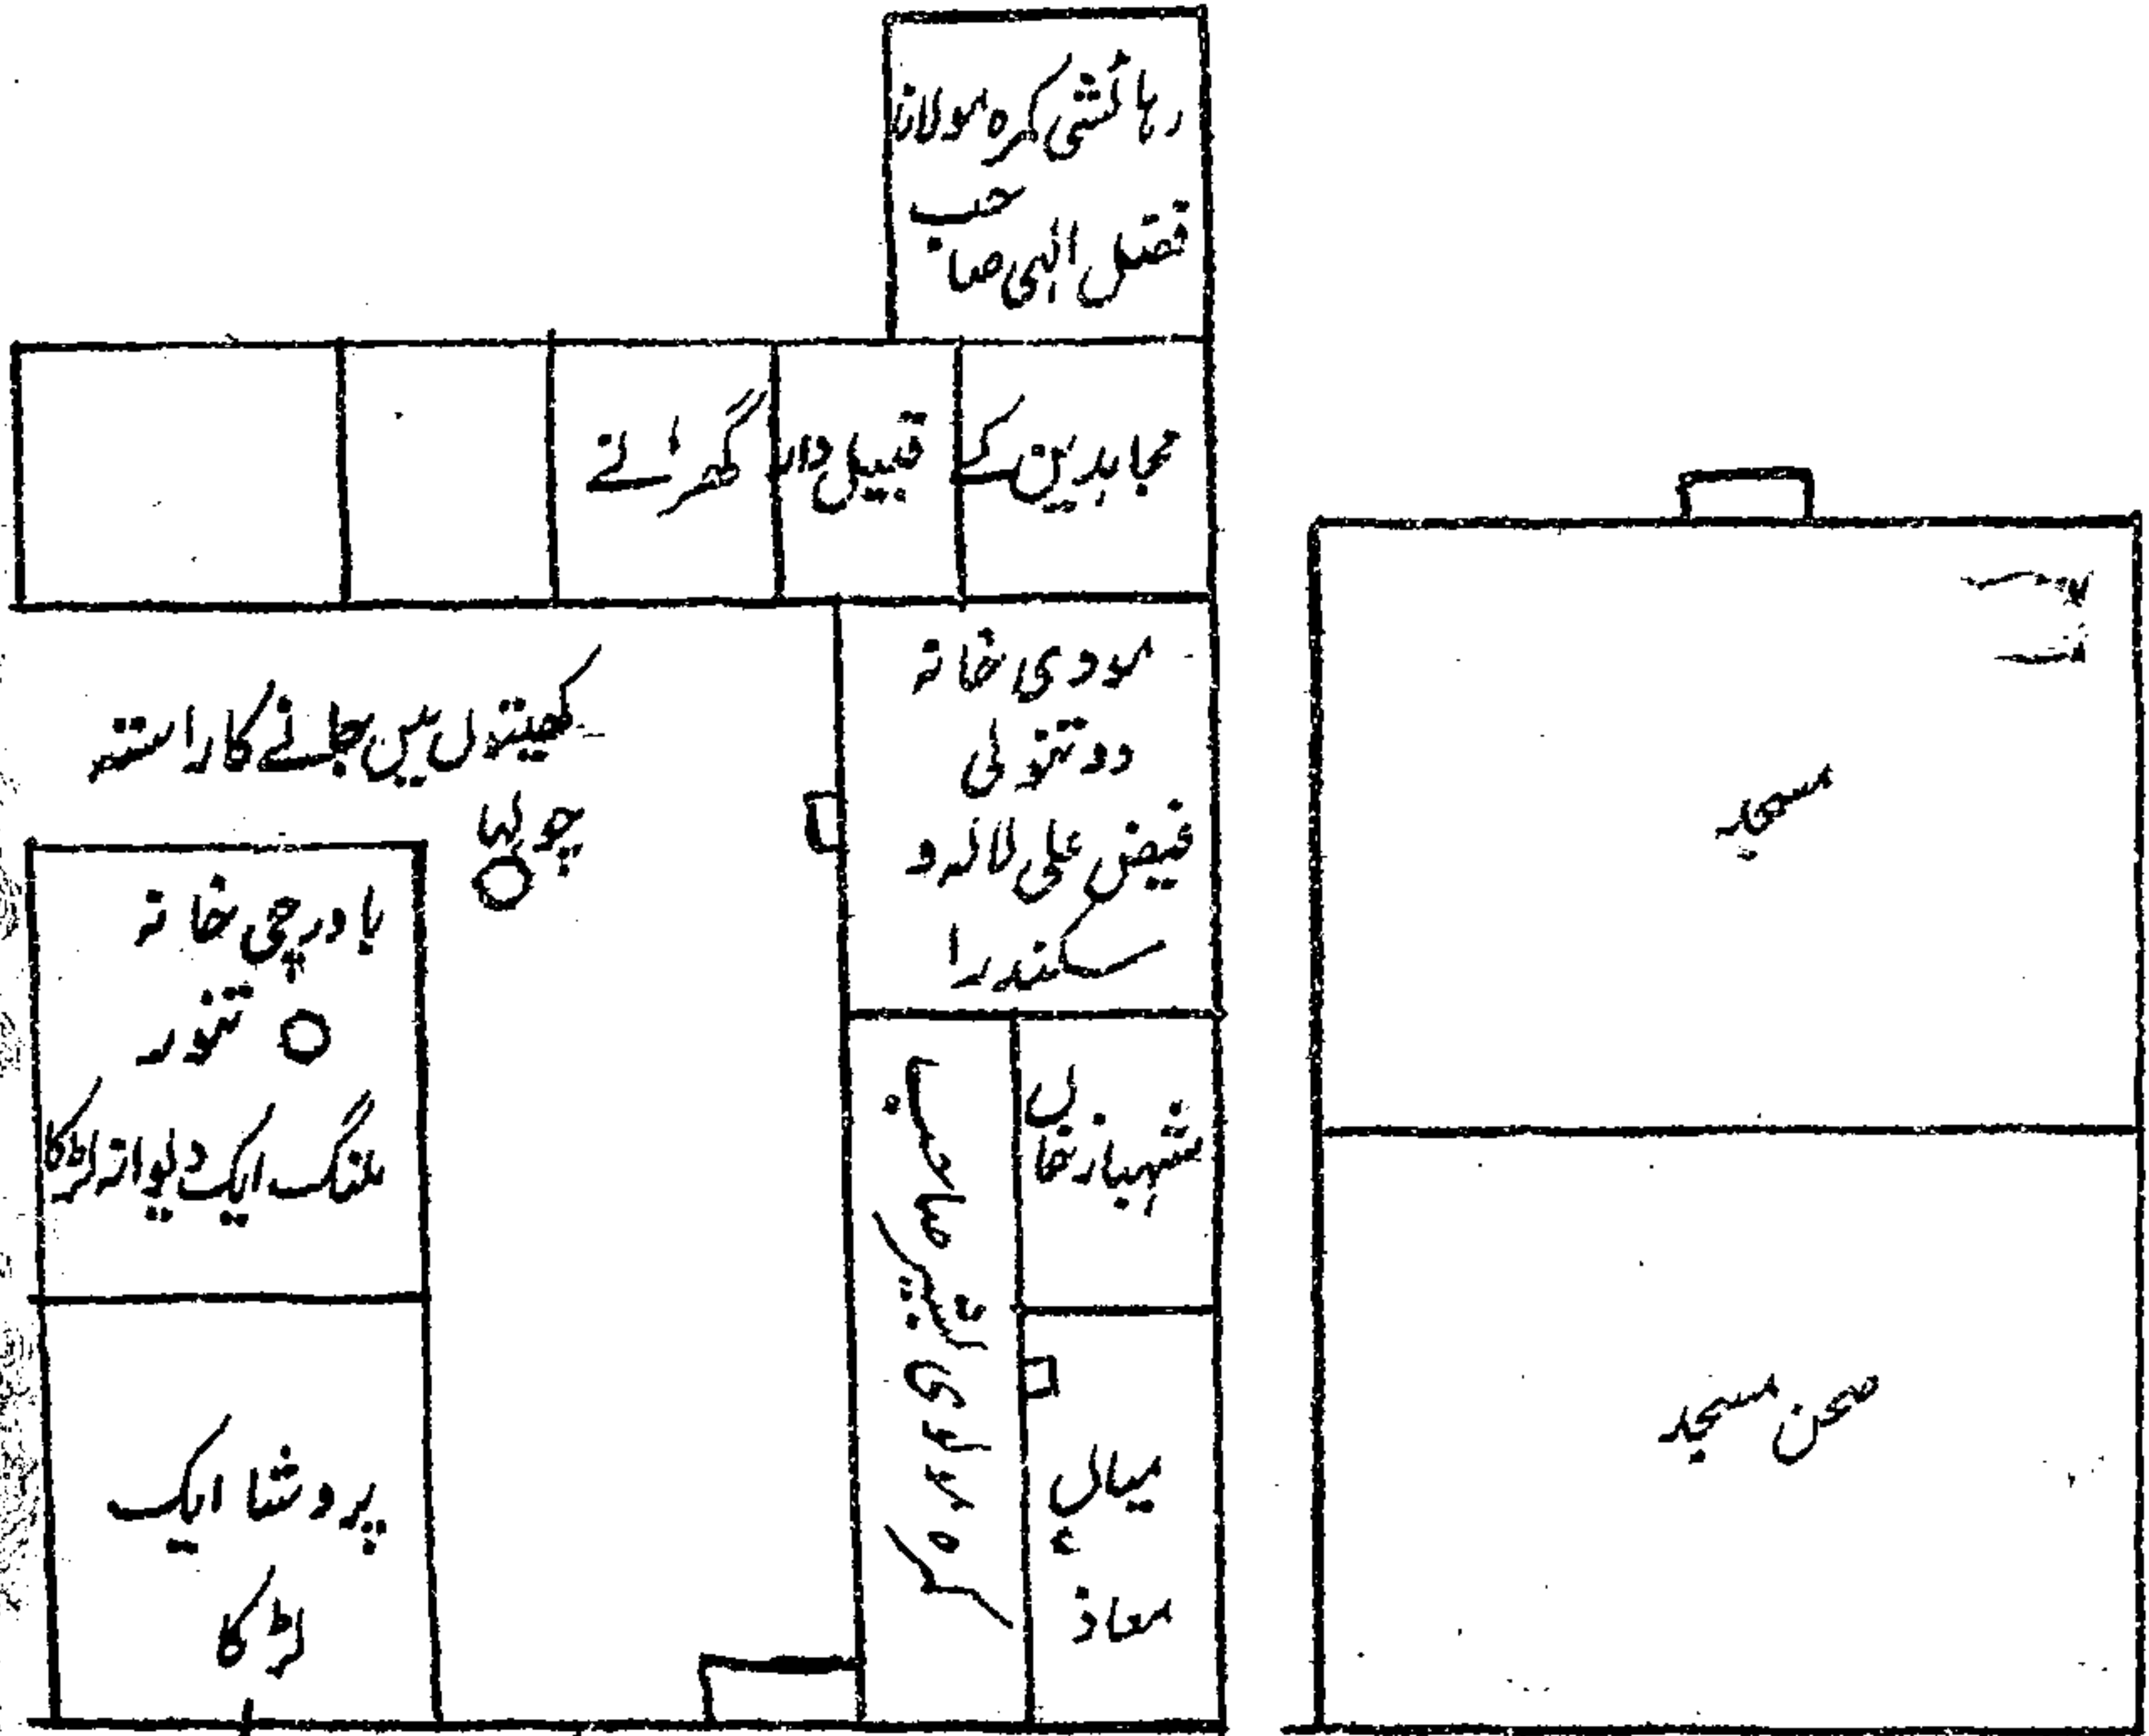 رہائشی کمرہ مولانا
فضل الہی صاحب
مجاہدین کے قبیل دار گھرانے
مودی خانہ
دو تنولی
فیض علی لانرد
سکندرا
کھیتوں میں جانے کا راستہ
چولہا
باورچی خانہ
تنور
ملنگ ایک دیوانہ لڑکا
شہباز خاں
میاں
معاذ
پردشا ایک
لڑکا
مسجد
صحن مسجد